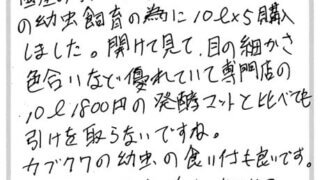 の幼虫飼育の為に10ℓ×5購入
しました。開けて見て、目の細かさ
色合いなど優れていて専門店の
10ℓ1800円の発酵マットと比べても
引けを取らないですね。
カブクワの幼虫の食い付も良いです。